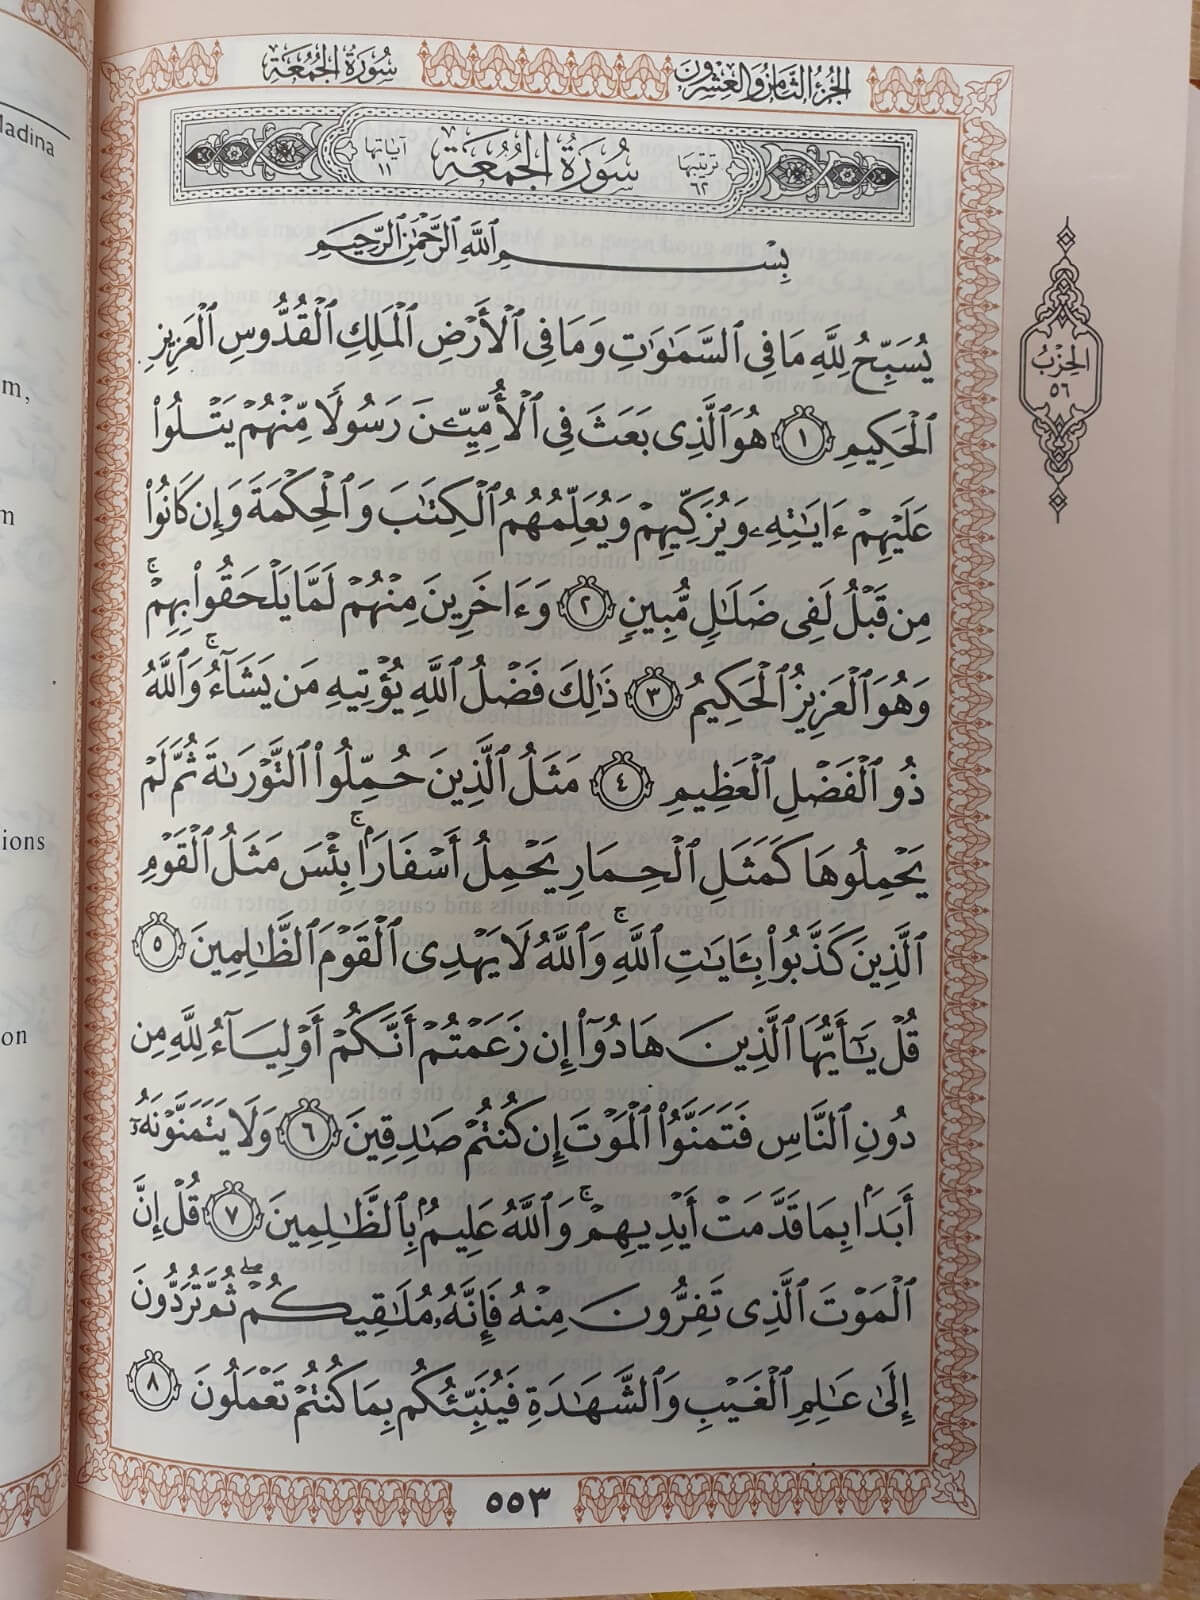 الجزء الثامن والعشرون
سورة الجمعة
ترتيبها ٦٢ سورة الجمعة آياتها ١١
بِسْمِ ٱللَّهِ ٱلرَّحْمَٰنِ ٱلرَّحِيمِ
يُسَبِّحُ لِلَّهِ مَا فِى ٱلسَّمَٰوَٰتِ وَمَا فِى ٱلْأَرْضِ ٱلْمَلِكِ ٱلْقُدُّوسِ ٱلْعَزِيزِ
ٱلْحَكِيمِ ١ هُوَ ٱلَّذِى بَعَثَ فِى ٱلْأُمِّيِّـۧنَ رَسُولًا مِّنْهُمْ يَتْلُوا۟
عَلَيْهِمْ ءَايَٰتِهِۦ وَيُزَكِّيهِمْ وَيُعَلِّمُهُمُ ٱلْكِتَٰبَ وَٱلْحِكْمَةَ وَإِن كَانُوا۟
مِن قَبْلُ لَفِى ضَلَٰلٍ مُّبِينٍ ٢ وَءَاخَرِينَ مِنْهُمْ لَمَّا يَلْحَقُوا۟ بِهِمْ ۚ
وَهُوَ ٱلْعَزِيزُ ٱلْحَكِيمُ ٣ ذَٰلِكَ فَضْلُ ٱللَّهِ يُؤْتِيهِ مَن يَشَآءُ ۚ وَٱللَّهُ
ذُو ٱلْفَضْلِ ٱلْعَظِيمِ ٤ مَثَلُ ٱلَّذِينَ حُمِّلُوا۟ ٱلتَّوْرَىٰةَ ثُمَّ لَمْ
يَحْمِلُوهَا كَمَثَلِ ٱلْحِمَارِ يَحْمِلُ أَسْفَارًۢا ۚ بِئْسَ مَثَلُ ٱلْقَوْمِ
ٱلَّذِينَ كَذَّبُوا۟ بِـَٔايَٰتِ ٱللَّهِ ۚ وَٱللَّهُ لَا يَهْدِى ٱلْقَوْمَ ٱلظَّٰلِمِينَ ٥
قُلْ يَٰٓأَيُّهَا ٱلَّذِينَ هَادُوٓا۟ إِن زَعَمْتُمْ أَنَّكُمْ أَوْلِيَآءُ لِلَّهِ مِن
دُونِ ٱلنَّاسِ فَتَمَنَّوُا۟ ٱلْمَوْتَ إِن كُنتُمْ صَٰدِقِينَ ٦ وَلَا يَتَمَنَّوْنَهُۥٓ
أَبَدًۢا بِمَا قَدَّمَتْ أَيْدِيهِمْ ۚ وَٱللَّهُ عَلِيمٌۢ بِٱلظَّٰلِمِينَ ٧ قُلْ إِنَّ
ٱلْمَوْتَ ٱلَّذِى تَفِرُّونَ مِنْهُ فَإِنَّهُۥ مُلَٰقِيكُمْ ۖ ثُمَّ تُرَدُّونَ
إِلَىٰ عَٰلِمِ ٱلْغَيْبِ وَٱلشَّهَٰدَةِ فَيُنَبِّئُكُم بِمَا كُنتُمْ تَعْمَلُونَ ٨
٥٥٣
الحزب
٥٦
Madina
ions
on